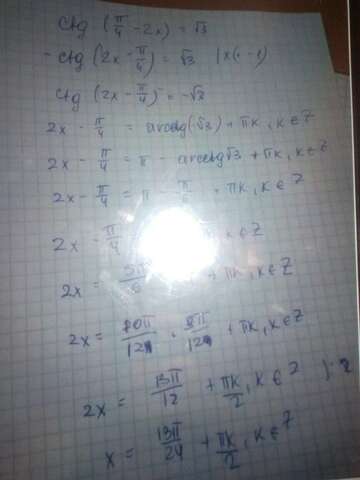 ctg (π/4 - 2x) = √3
- ctg (2x - π/4) = √3 | x (- 1)
ctg (2x - π/4) = -√3
2x - π/4 = arcctg(-√3) + πk, k ∈ Z
2x - π/4 = π - arcctg√3 + πk, k ∈ Z
2x - π/4 = π - π/6 + πk, k ∈ Z
2x - π/4 k ∈ Z
2x = 5π/6 + πk, k ∈ Z
2x = 10π/12 + πk, k ∈ Z
2x = 13π/12 + πk/2, k ∈ Z ): 2
x = 13π/24 + πk/2, k ∈ Z